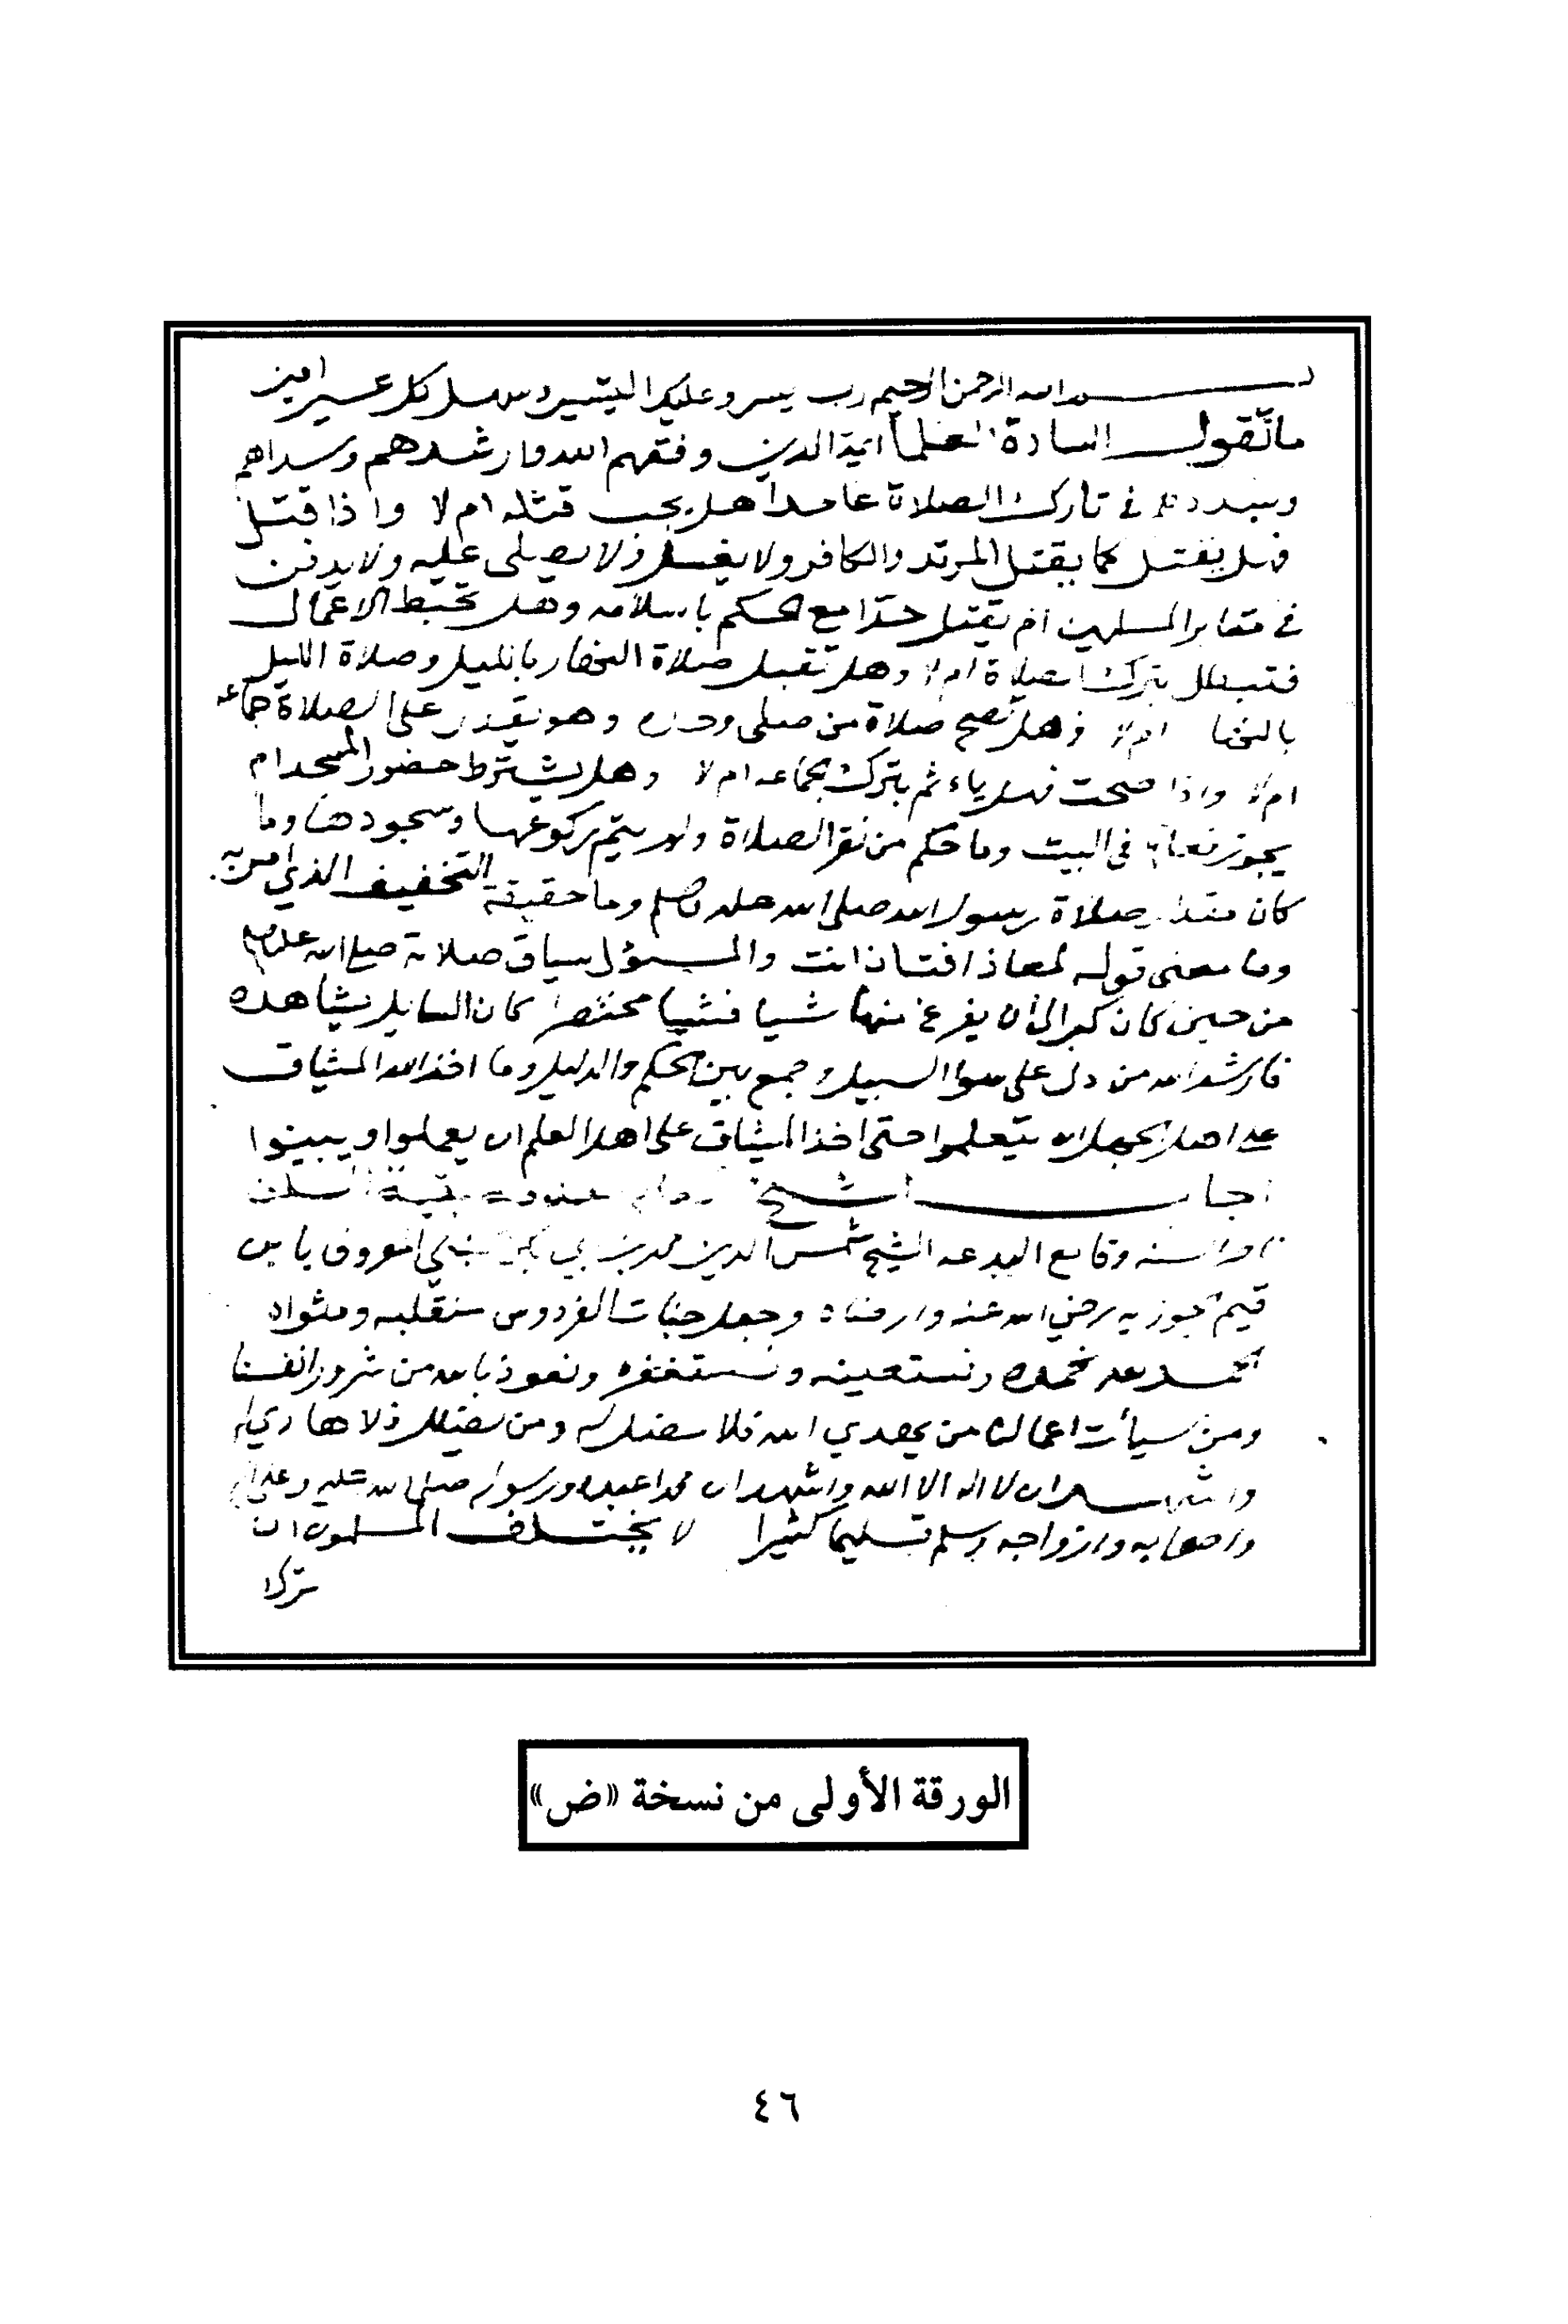 بسم الله الرحمن الرحيم رب يسر وعليك التيسير وسهل كل عسير امين
ما تقول السادة العلما ائمة الدين وفقهم الله وارشدهم وسداهم
وسددهم في تارك الصلاة عامدا هل يجب قتله ام لا واذا قتل
فهل يقتل كما يقتل المرتد والكافر ولا يغسل ولا يصلى عليه ولا يدفن
في مقابر المسلمين ام يقتل حدا مع الحكم باسلامه وهل تحبط الاعمال
فتبطل بترك الصلاة ام لا وهل تقبل صلاة النهار بالليل وصلاة الليل
بالنها ام لا وهل تصح صلاة من صلى وحده وهو يقدر على الصلاة جماعه
ام لا واذا صحت فهل ياءثم بترك الجماعه ام لا وهل يشترط حضور المسجد ام
يجوز فعلها في البيت وما حكم من نقر الصلاة ولم يتم ركوعها وسجودها وما
كان مقدار صلاة رسول الله صلى الله عليه وسلم وما حقيقة التخفيف الذي امر به
وما معنى قوله لمعاذ افتان انت والمسؤل سياق صلاته صلى الله عليه وسلم
من حين كان كبر الى ان يفرغ منها شيا فشيا مختصرا كان السايل يشاهده
فارشد الله من دل على سوا السبيل وجمع بين الحكم والدليل وما اخذ الله الميثاق
على اهل الجهل ان يتعلموا حتى اخذ الميثاق على اهل العلم ان يعملوا ويبينوا
اجاب الشيخ بقية السلف
ناصر السنه وقامع البدعه الشيخ شمس الدين محمد بن ابي بكر الحنبلي المعروف بابن
قيم الجوزيه رضي الله عنه وارضاه وجعل جنات الفردوس منقلبه ومثواه
الحمد لله نحمده ونستعينه ونستغفره ونعوذ بالله من شرور انفسنا
ومن سيأت اعمالنا من يهدي الله فلا مضل له ومن يضلل فلا هادي له
واشهد ان لا اله الا الله واشهد ان محمدا عبده ورسوله صلى الله عليه وعلى اله
واصحابه وازواجه وسلم تسليما كثيرا لا يختلف المسلمون ان
ترك
الورقة الأولى من نسخة «ض»
٤٦